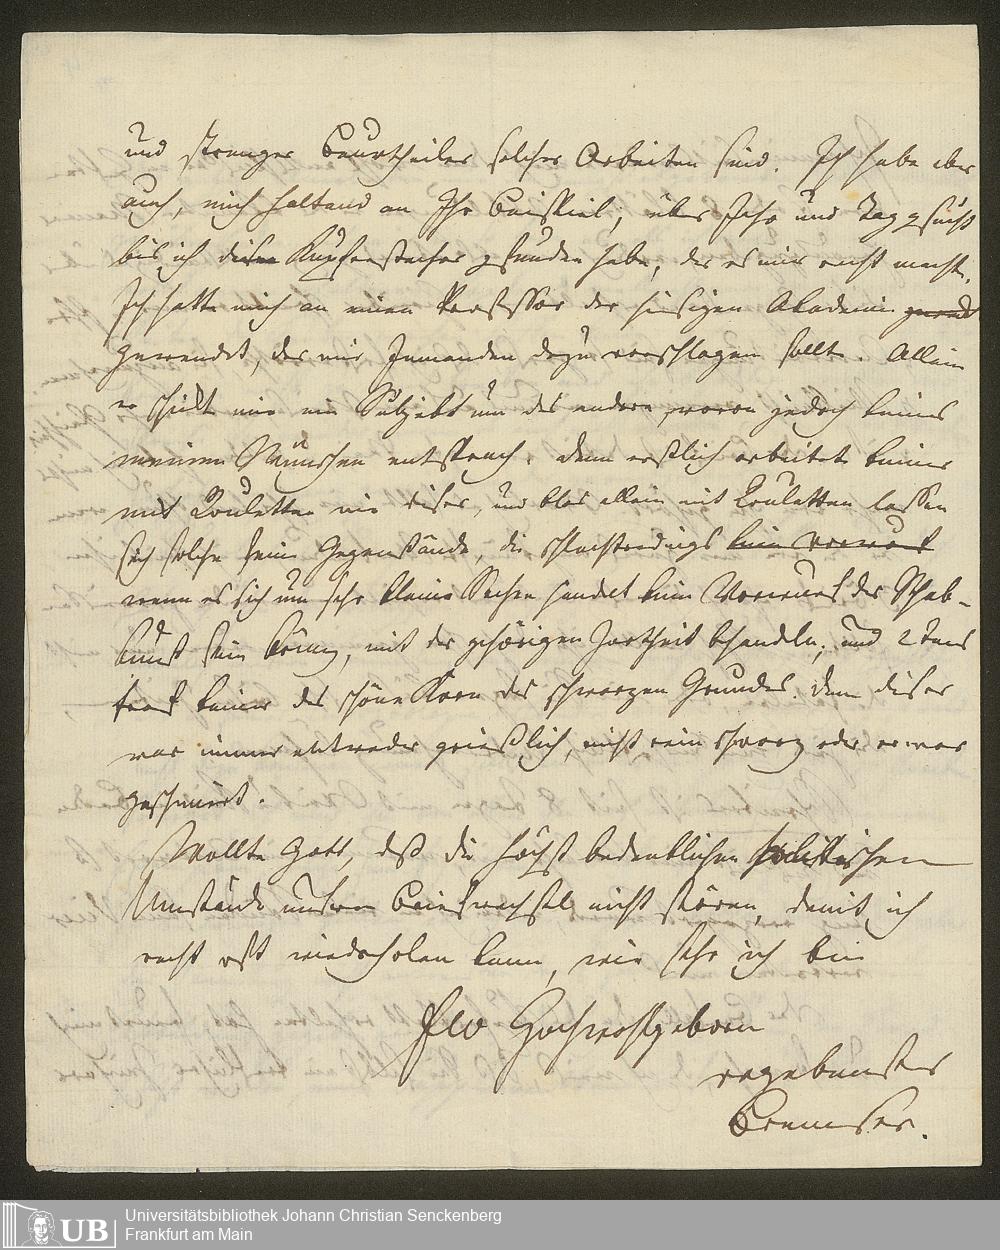 und strenger Beurtheiler solcher Arbeiten sind. Ich habe aber
auch, mich haltend an Ihr Beispiel, über Jahr und Tag gesucht
bis ich diesen Kupferstecher gefunden habe, der es mir recht macht.
Ich hatte mich an einen Professor der hiesigen Akademie
gewendet, der mir Jemanden dazu vorschlagen sollte. Allein
er schickte mir ein Subjekt um das andere, wovon jedoch keines
meinen Wünschen entsprach. Denn erstlich arbeitete keiner
mit Rouletten wie dieser, und blos allein mit Rouletten lassen
sich solche feine Gegenstände, die schlechterdings kein Vorwurf
wenn es sich um sehr kleine Sachen handelt kein Vorwurf der Schab-
kunst sein können, mit der gehörigen Zartheit behandeln; und 2tens
traf keiner das schöne Korn des schwarzen Grundes. Denn dieser
war immer entweder grießlich, nicht rein schwarz oder er war
geschmiert.
Wollte Gott, daß die höchst bedenklichen politischen
Umstände unsern Briefwechsel nicht stören, damit ich
recht oft wiederholen kann, wie sehr ich bin
Euer Hochwohlgeboren
ergebenster
Bremser.
Universitätsbibliothek Johann Christian Senckenberg
Frankfurt am Main
UB